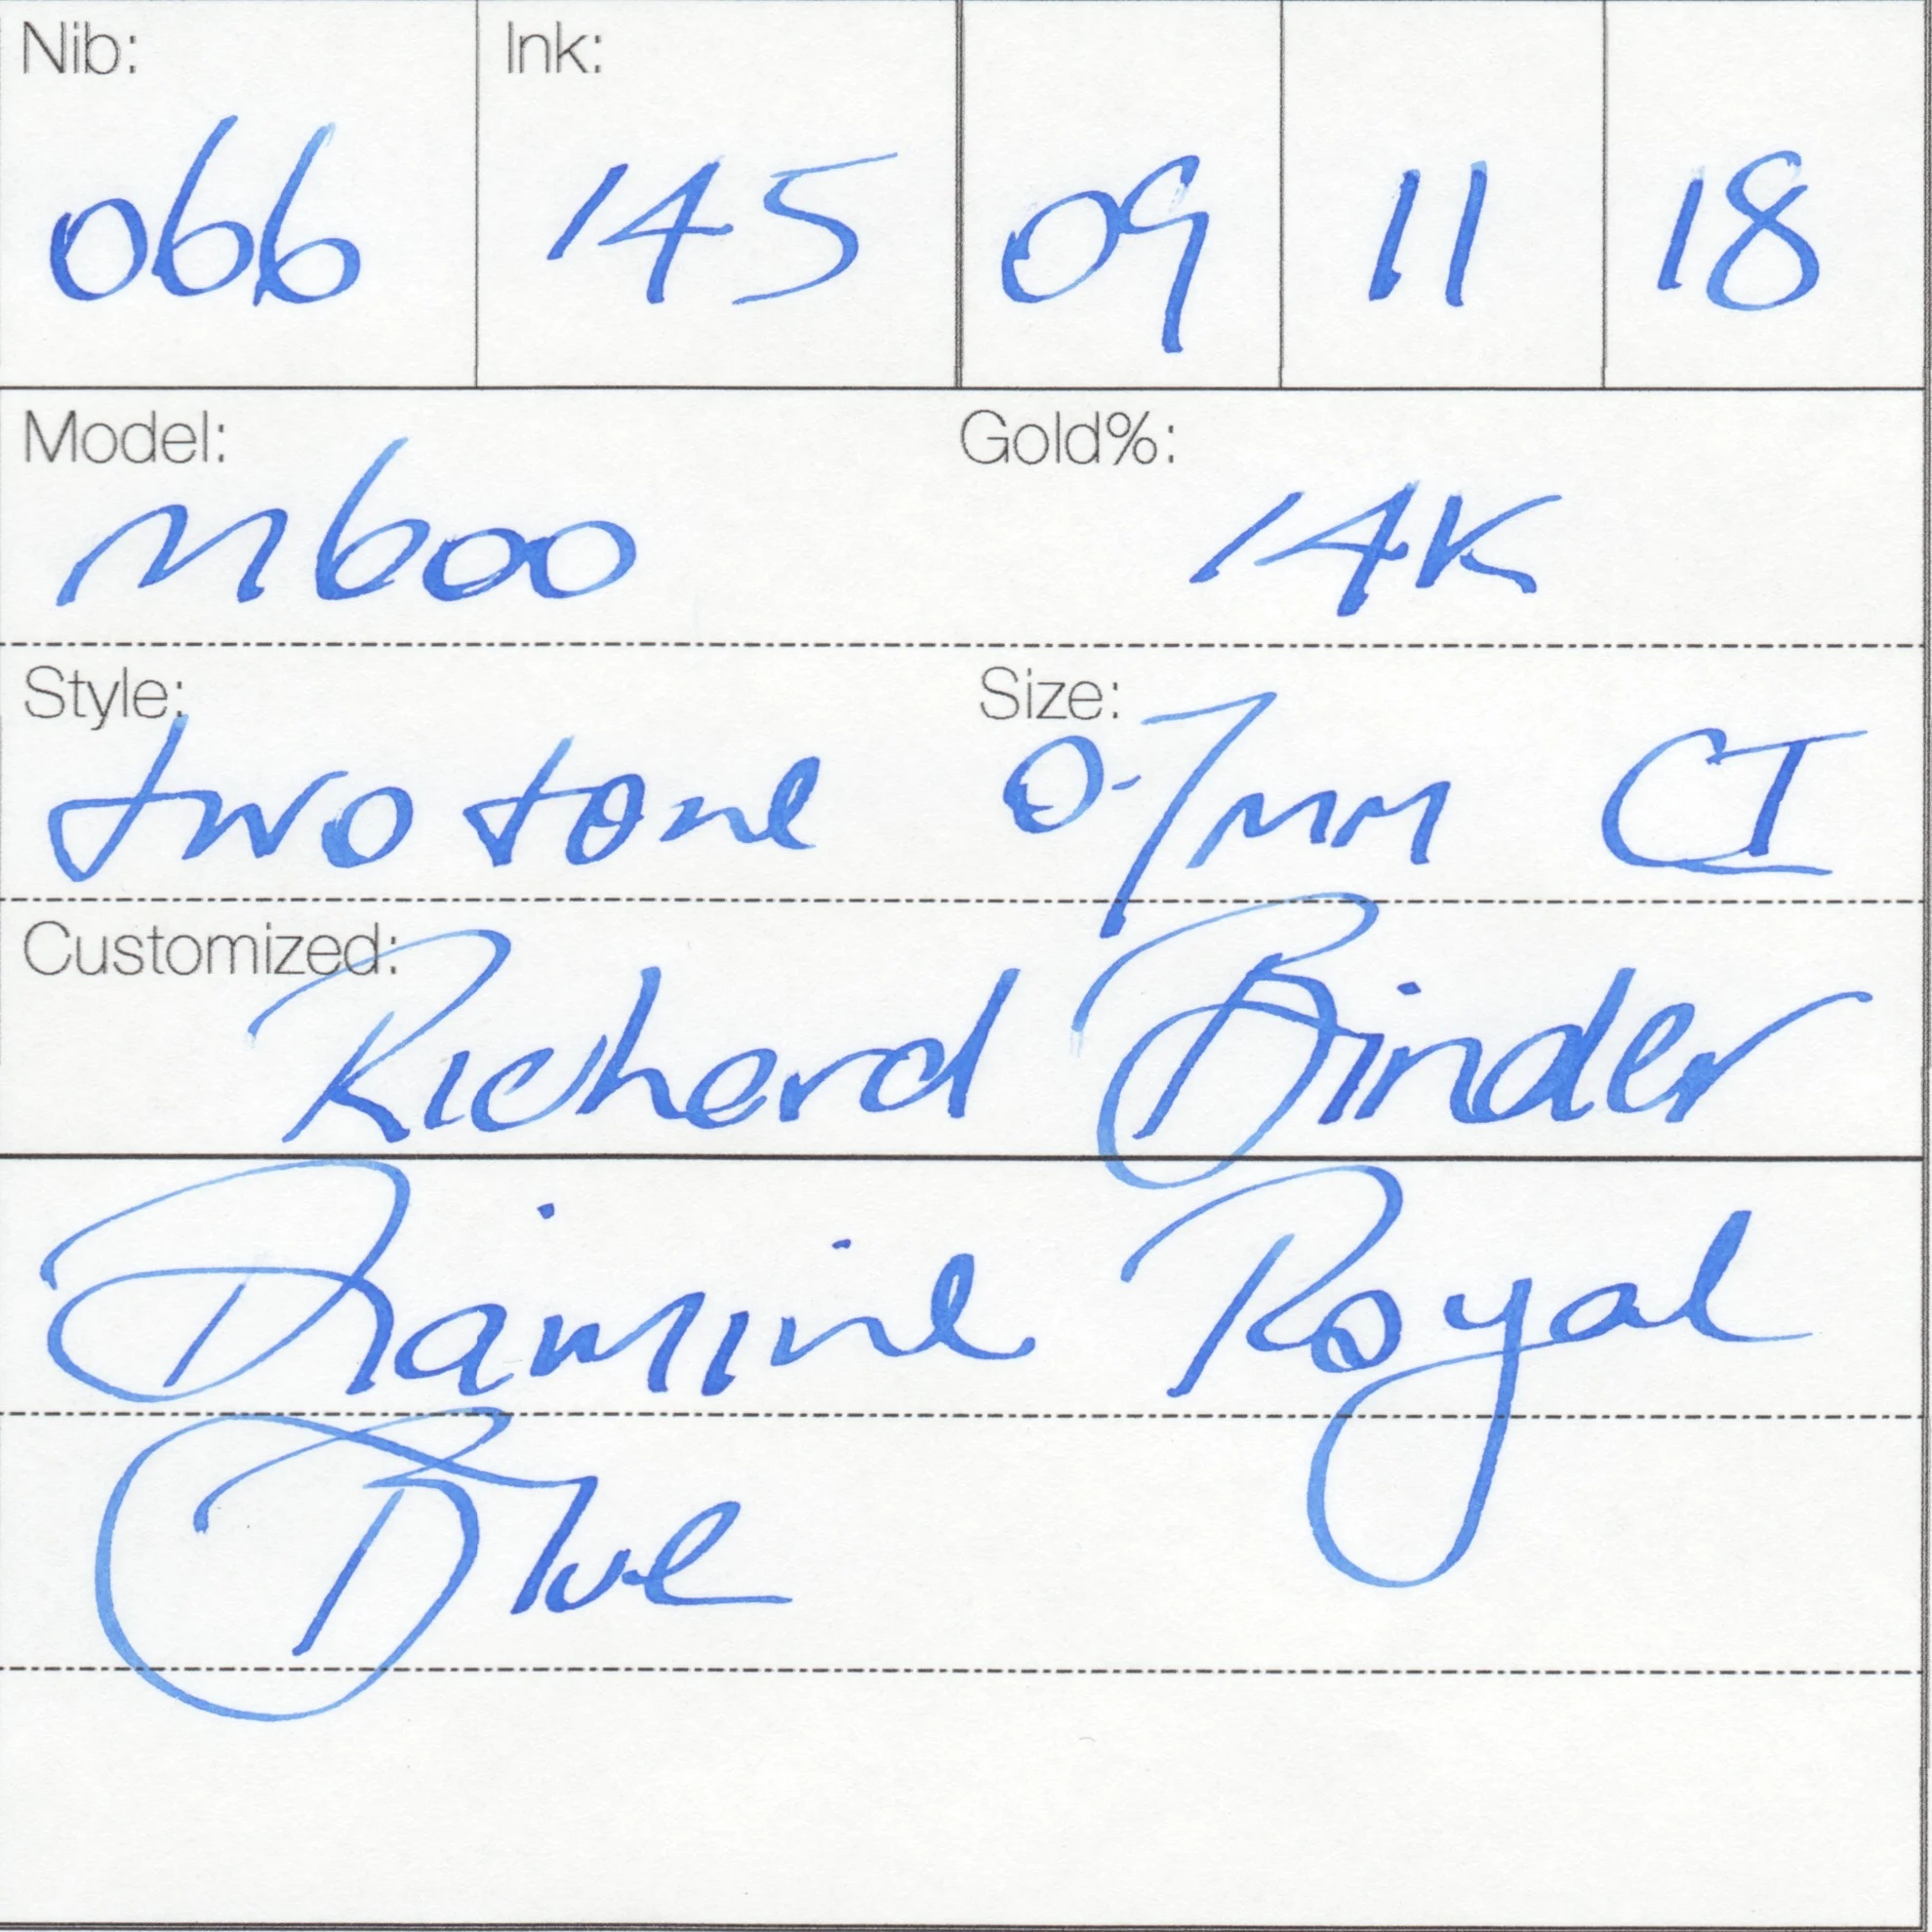 Nib: Ink:
066 145 09 11 18
Model: Gold%:
M600 14K
Style: Size:
two tone 0.7mm CI
Customized:
Richard Binder
Diamine Royal
Blue